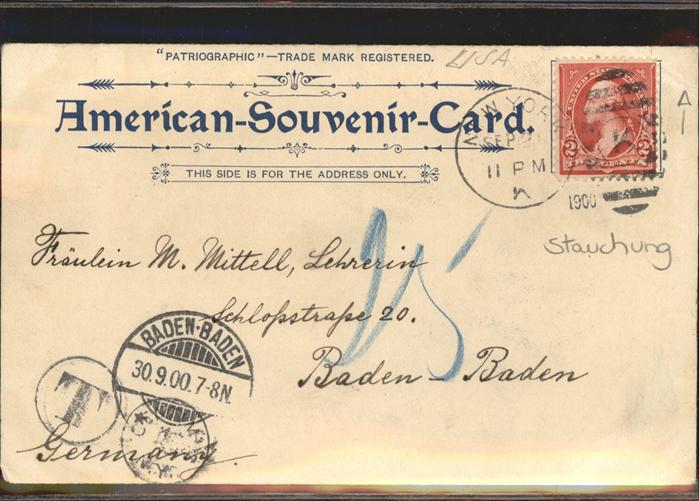 "PATRIOGRAPHIC"—TRADE MARK REGISTERED.
USA
American-Souvenir-Card.
THIS SIDE IS FOR THE ADDRESS ONLY.
NEW YORK
SEP
11 PM
1900
2
2
A
Stauchung
Fräulein M. Mittell, Lehrerin
Schloßstraße 20.
Baden-Baden
Germany
15
BADEN-BADEN
30.9.00.7-8N.
T